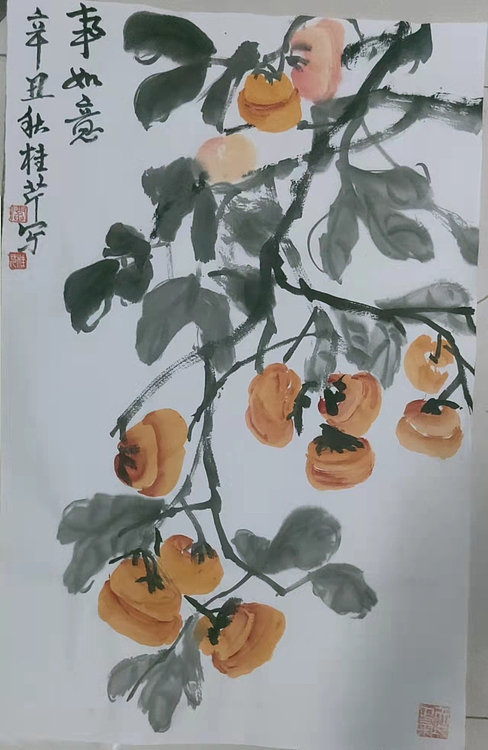 事如意
辛丑秋桂芹写